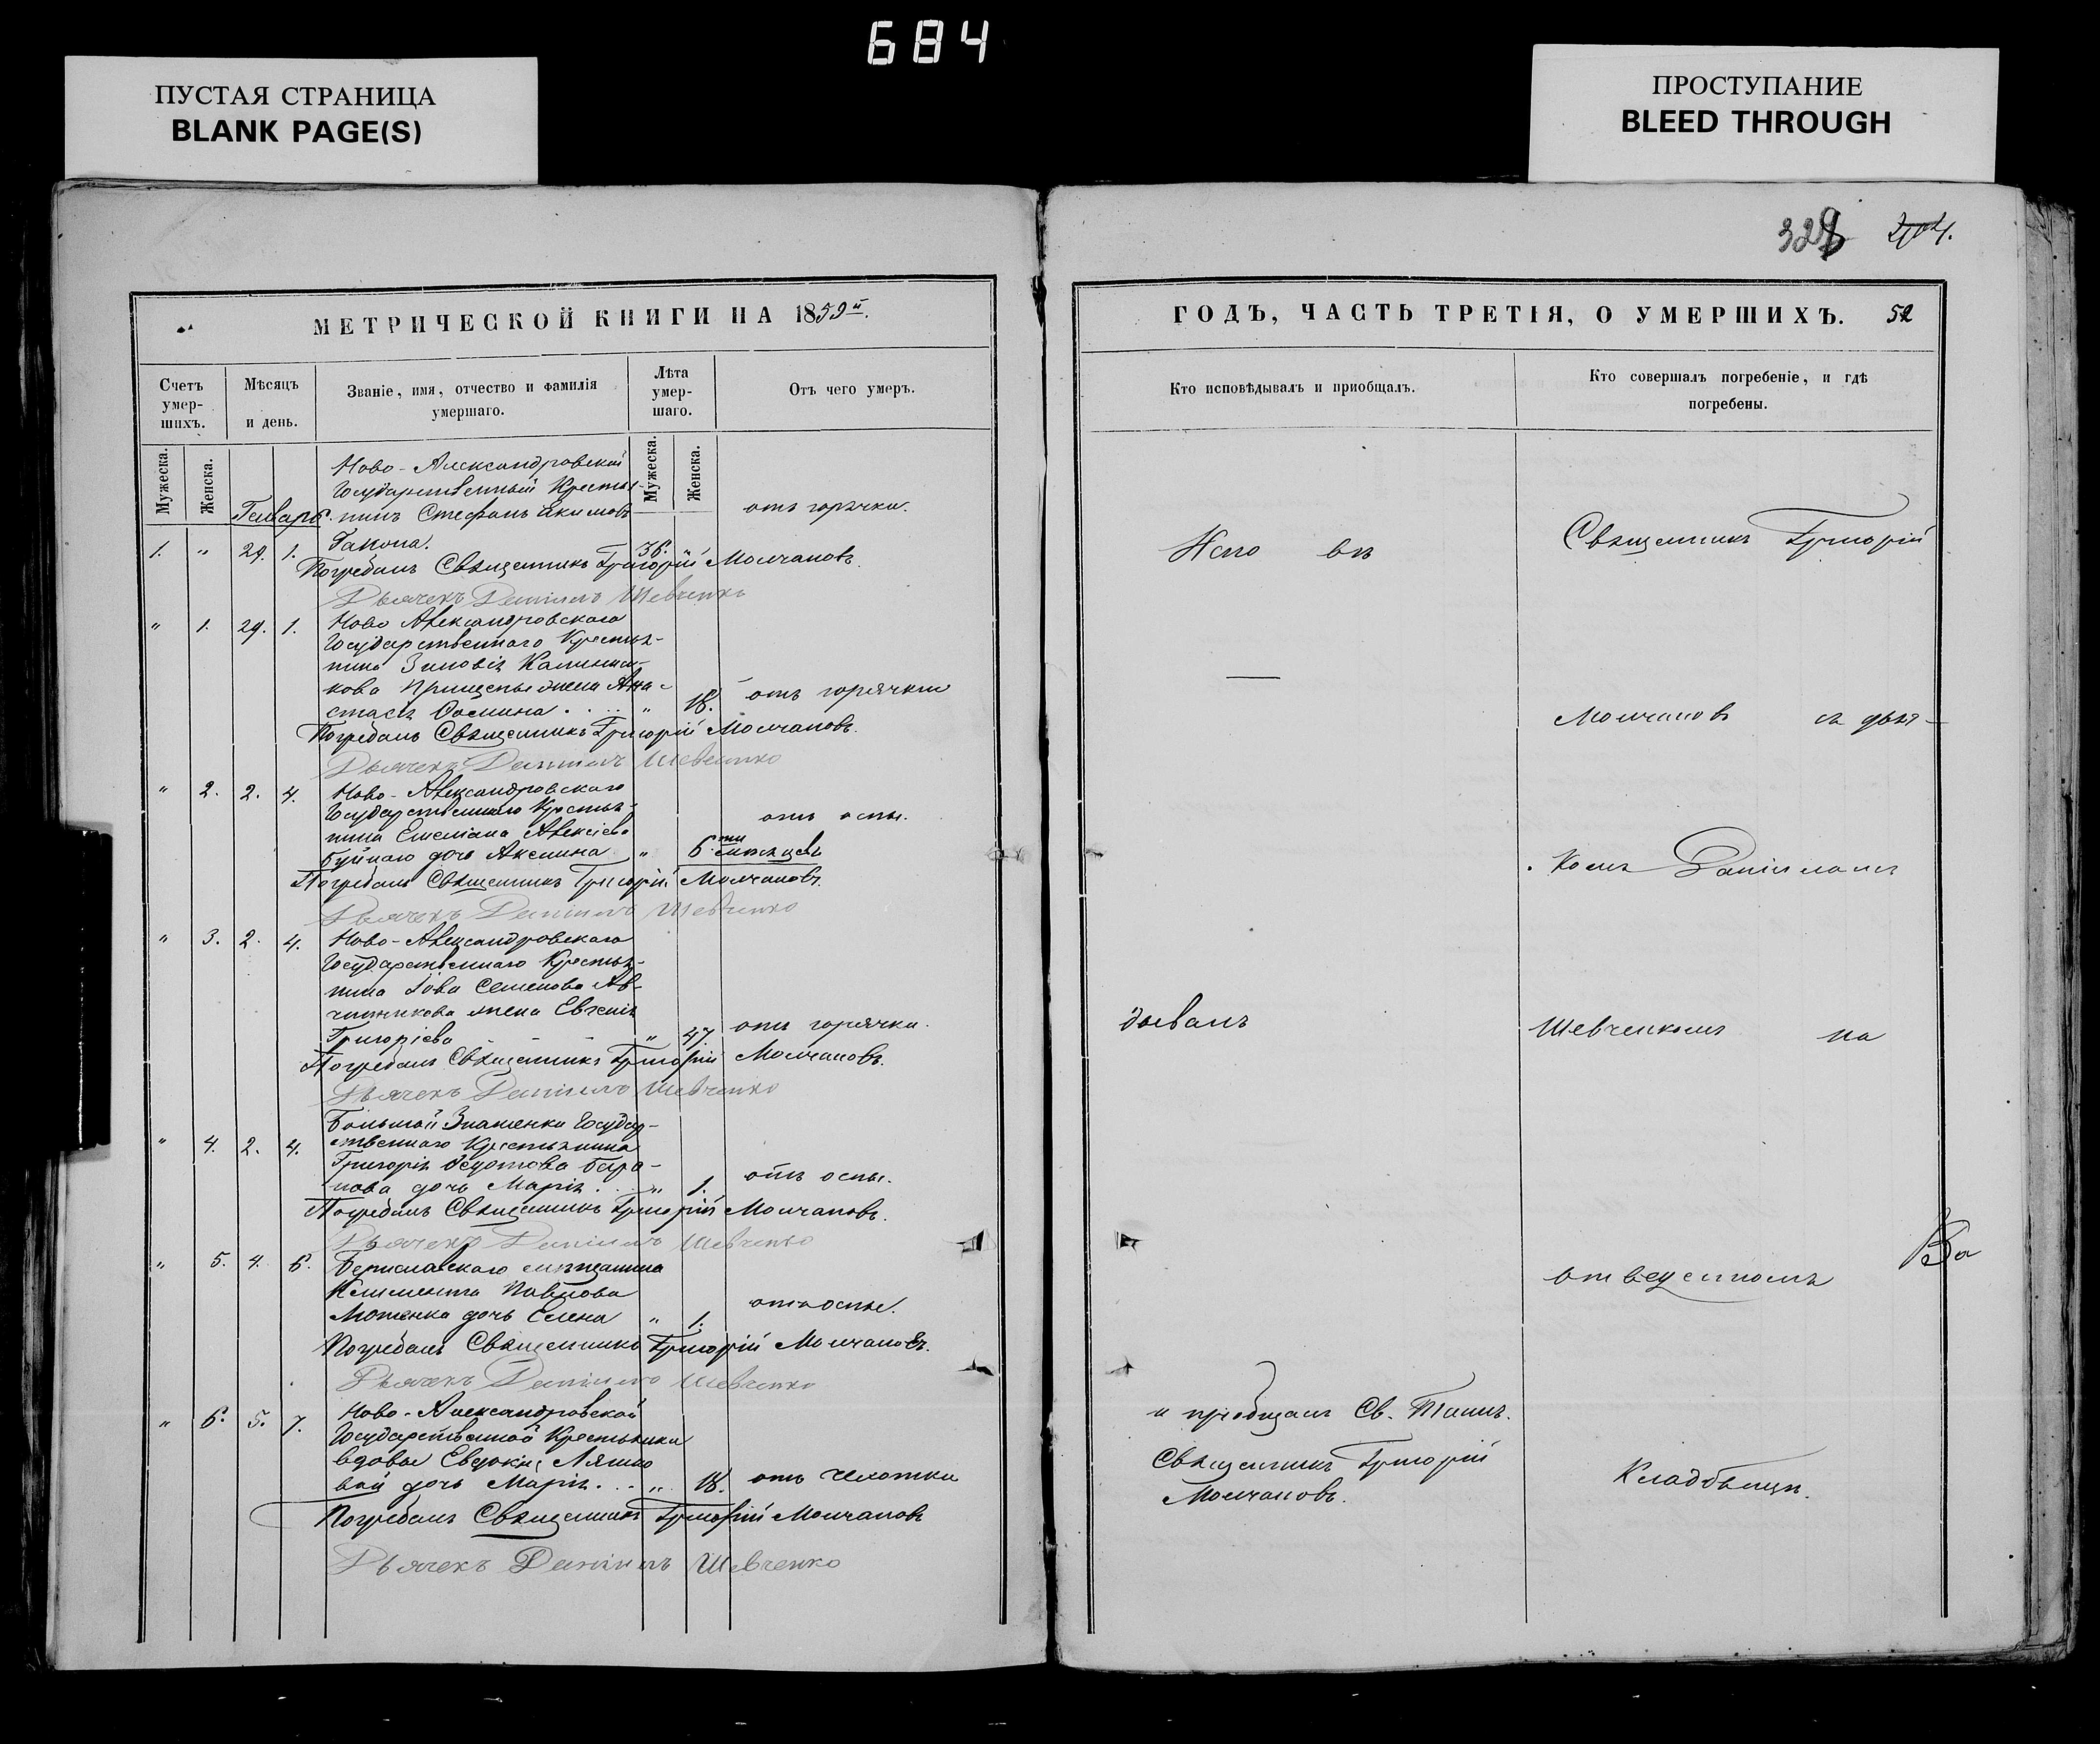 684
ПУСТАЯ СТРАНИЦА
BLANK PAGE(S)
ПРОСТУПАНИЕ
BLEED THROUGH
МЕТРИЧЕСКОЙ КНИГИ НА 1859й.
Счетъ умер-шихъ.
Мѣсяцъ и день.
Званіе, имя, отчество и фамилія умершаго.
Лѣта умер-шаго.
Отъ чего умеръ.
Мужеска.
Женска.
Мужеска.
Женска.
Январь.
Ново-Александровской
Государственный Крестья-
нинъ Стефанъ Екимовъ
отъ горячки.
1. " 29. 1. Гапона. 36. "
Погребалъ Священникъ Григорій Молчановъ.
Дьячекъ Даніилъ Шевченко
" 1. 29. 1. Ново Александровскаго
Государственнаго Крестья-
нина Зиновія Калинни-
кова Прищепы жена Ана-
стасія Фомина . . . " 18. отъ горячки
Погребалъ Священникъ Григорій Молчановъ.
Дьячекъ Даніилъ Шевченко
" 2. 2. 4. Ново-Александровскаго
Государственнаго Крестья-
нина Емеліана Алексіева
отъ оспы.
Буйнаго дочь Акилина " 6ти мѣсяцевъ
Погребалъ Священникъ Григорій Молчановъ.
Дьячекъ Даніилъ Шевченко
" 3. 2. 4. Ново-Александровскаго
Государственнаго Крестья-
нина Іова Семенова Ав-
жена Евгенія
Григоріева " 47. отъ горячки.
Погребалъ Священникъ Григорій Молчановъ.
Дьячекъ Даніилъ Шевченко
Большой Знаменки Государ-
" 4. 2. 4. ственнаго Крестьянина
Григорія Федотова Бара-
нова дочь Марія . . " 1. отъ оспы.
Погребалъ Священникъ Григорій Молчановъ.
Дьячекъ Даніилъ Шевченко
" 5. 4. 6. Бериславскаго мѣщанина
Климента Павлова
дочь Елена " 1. отъ оспы.
Погребалъ Священникъ Григорій Молчановъ.
Дьячекъ Даніилъ Шевченко
" 6. 5. 7. Ново-Александровской
Государственной Крестьянки
вдовы Евдокіи Ляшко
вой дочь Марія . . . " 18. отъ чахотки
Погребалъ Священникъ Григорій Молчановъ
Дьячекъ Даніилъ Шевченко
ГОДЪ, ЧАСТЬ ТРЕТІЯ, О УМЕРШИХЪ. 52
Кто исповѣдывалъ и приобщалъ.
Кто совершалъ погребеніе, и гдѣ погребены.
Испо вѣ
дывалъ
и пріобщалъ Св. Таинъ.
Священникъ Григорій
Молчановъ.
Священникъ Григорій
Молчановъ съ дья-
комъ Даніиломъ
Шевченкомъ на
отведенномъ
Кладбищѣ.